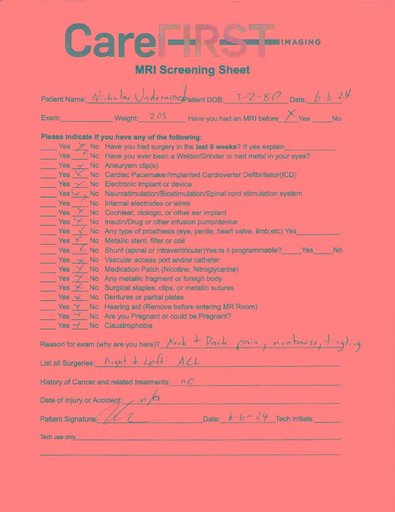 CareFIRST IMAGING
MRI Screening Sheet
Patient Name: Nicholas Underwood Patient DOB: 7-2-80 Date: 6-6-24
Exam: Weight: 205 Have you had an MRI before X Yes No
Please indicate if you have any of the following:
Yes X No Have you had surgery in the last 6 weeks? If yes explain
Yes X No Have you ever been a Welder/Grinder or had metal in your eyes?
Yes X No Aneurysm clip(s)
Yes X No Cardiac Pacemaker/Implanted Cardioverter Defibrillator(ICD)
Yes X No Electronic implant or device
Yes X No Neurostimulation/Biostimulation/Spinal cord stimulation system
Yes X No Internal electrodes or wires
Yes X No Cochlear, otologic, or other ear implant
Yes X No Insulin/Drug or other infusion pump/device
Yes X No Any type of prosthesis (eye, penile, heart valve, limb,etc) Yes
Yes X No Metallic stent, filter or coil
Yes X No Shunt (spinal or intraventricular)Yes Is it programmable? Yes No
Yes X No Vascular access port and/or catheter
Yes X No Medication Patch (Nicotine, Nitroglycerine)
Yes X No Any metallic fragment or foreign body
Yes X No Surgical staples, clips, or metallic sutures
Yes X No Dentures or partial plates
Yes X No Hearing aid (Remove before entering MR Room)
Yes X No Are you Pregnant or could be Pregnant?
Yes X No Claustrophobia
Reason for exam (why are you here)? Neck + Back pain, numbness, tingling
List all Surgeries: Right + Left ACL
History of Cancer and related treatments: no
Date of Injury or Accident: n/a
Patient Signature: Date: 6-6-24 Tech Initials:
Tech use only